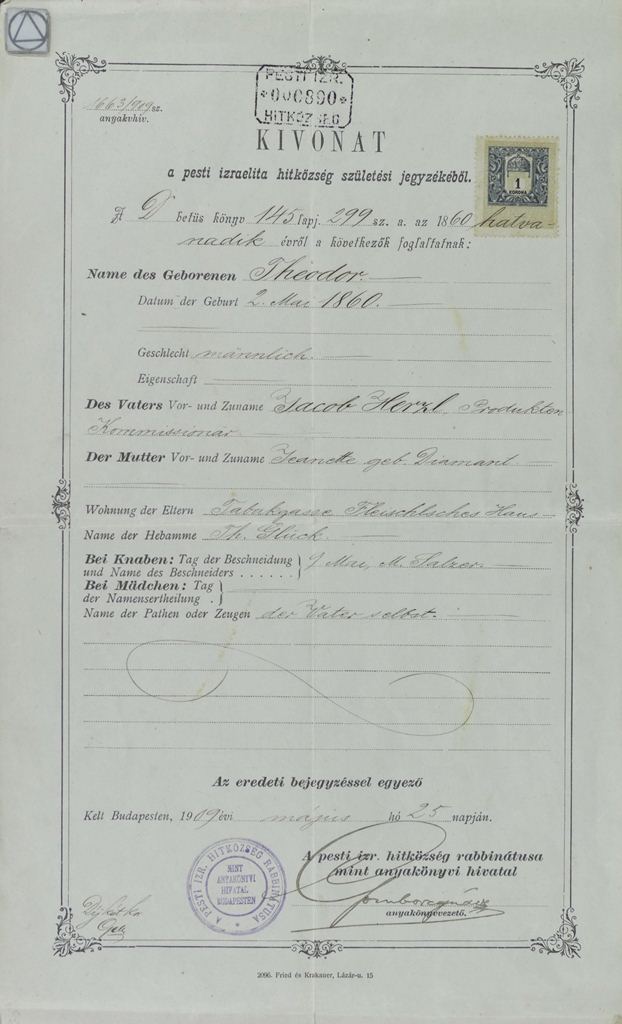 PESTI IZR.
*000890*
HITKÖZSÉG
1663/909 sz.
anyakvhiv.
KIVONAT
a pesti izraelita hitközség születési jegyzékéből.
1 KORONA
A D betüs könyv 145 lapj. 299 sz. a. az 1860 hatva-
nadik évről a következők foglaltatnak:
Name des Geborenen Theodor.
Datum der Geburt 2. Mai 1860.
Geschlecht männlich.
Eigenschaft
Des Vaters Vor- und Zuname Jacob Herzl, Produkten
Kommissionär
Der Mutter Vor- und Zuname Jeanette geb. Diamant
Wohnung der Eltern Tabakgasse Fleischlsches Haus
Name der Hebamme Th. Glück.
Bei Knaben: Tag der Beschneidung
und Name des Beschneiders . . . . . . } 9 Mai, M. Salzer.
Bei Mädchen: Tag
der Namensertheilung . }
Name der Pathen oder Zeugen der Vater selbst.
Az eredeti bejegyzéssel egyező
Kelt Budapesten, 1909 évi május hó 25 napján.
A pesti izr. hitközség rabbinátusa
mint anyakönyvi hivatal
A PESTI IZR. HITKÖZSÉG RABBINÁTUSA
MINT
ANYAKÖNYVI
HIVATAL
BUDAPESTEN
anyakönyvvezető.
2096. Fried és Krakauer, Lázár-u. 15